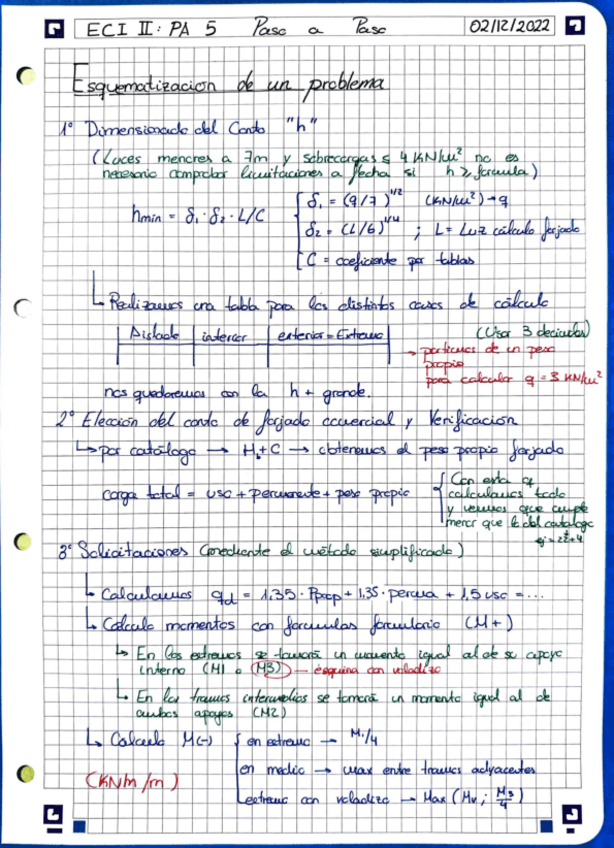 ECI II: PA 5 Paso a Paso 02/12/2022
Esquematización de un problema
1º Dimensionado del Canto "h"
(Luces menores a 7m y sobrecargas ≤ 4 KN/m² no es
necesario comprobar limitaciones a flecha si h ≥ formula)
hmin = δ₁ · δ₂ · L/C
δ₁ = (q/7)^1/2 (KN/m²) → q
δ₂ = (L/6)^1/4 ; L = Luz cálculo forjado
C = coeficiente por tablas
↳ Realizamos una tabla para los distintos casos de cálculo
Aislado interior exterior = Extremo
(Usar 3 decimales)
→ partimos de un peso
propio
para calcular q = 3 KN/m²
nos quedaremos con la h + grande.
2º Elección del canto de forjado comercial y Verificación
↳ por catálogo → H+C → obtenemos el peso propio forjado
carga total = uso + permanente + peso propio
Con esta q
calculamos todo
y vemos que cumple
menor que la del catálogo
3º Solicitaciones (mediante el método simplificado)
↳ Calculamos qd = 1,35 · Pprop + 1,35 · perma + 1,5 uso = ...
↳ Calculo momentos con formulas formulario (M+)
↳ En los extremos se tomará un momento igual al de su apoyo
interno (M1 o M3) — esquina con voladizo
↳ En los tramos intermedios se tomará un momento igual al de
ambos apoyos (M2)
↳ Calculo M(-)
en extremo → M₁/4
en medio → max entre tramos adyacentes
extremo con voladizo → Max (Mv ; M3/4)
(KNm/m)